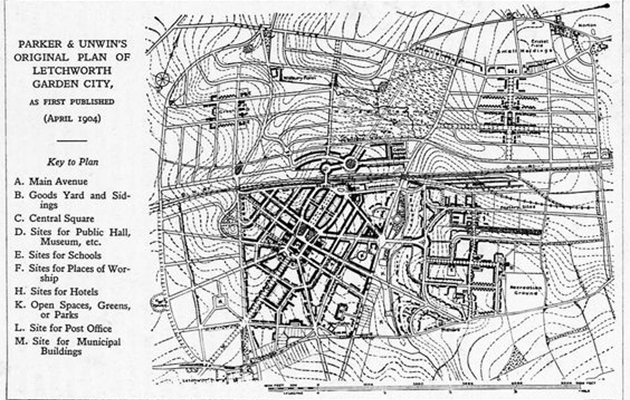 PARKER & UNWIN'S
ORIGINAL PLAN OF
LETCHWORTH
GARDEN CITY,
AS FIRST PUBLISHED
(APRIL 1904)
Key to Plan
A. Main Avenue
B. Goods Yard and Sid-
ings
C. Central Square
D. Sites for Public Hall,
Museum, etc.
E. Sites for Schools
F. Sites for Places of Wor-
ship
H. Sites for Hotels
K. Open Spaces, Greens,
or Parks
L. Site for Post Office
M. Site for Municipal
Buildings
Norton
Small Holdings
Recreation
Ground